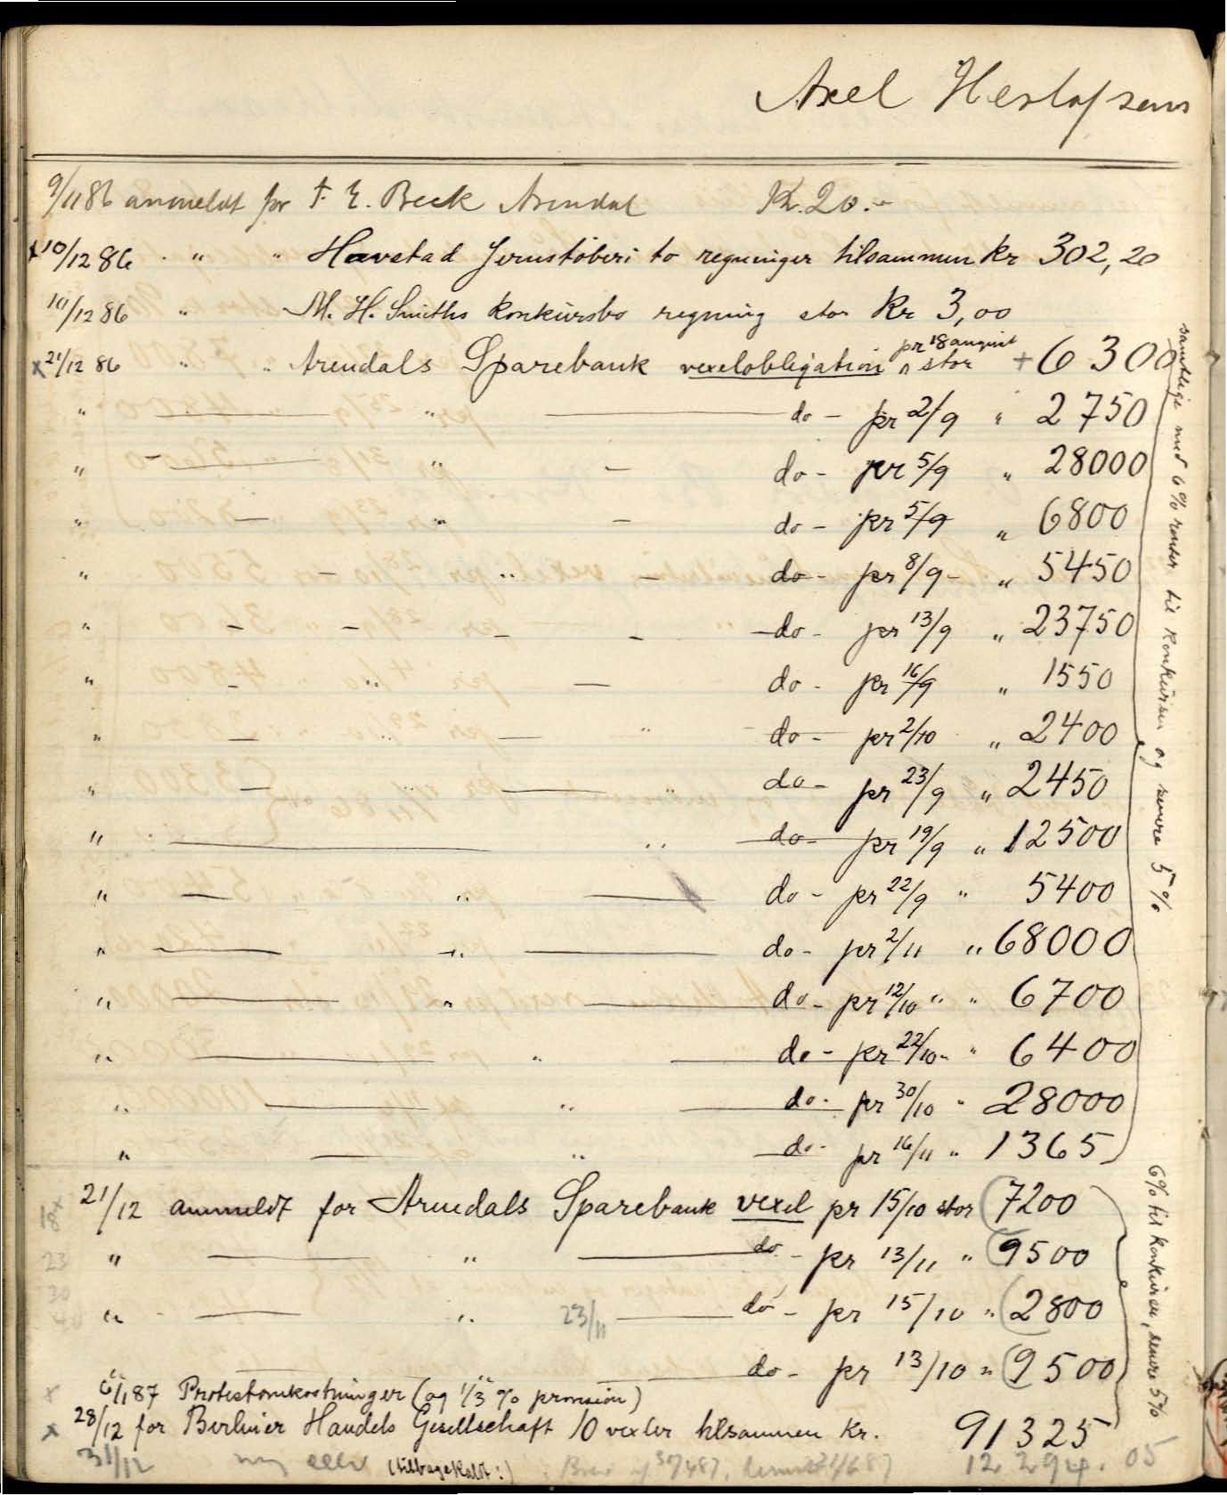 Axel Herlofsens
9/11 86 anmeldt for F. E. Beck Arendal Kr. 20.-
x 10/12 86 " " Havstad Jernstøberi to regninger tilsammen kr 302,20
10/12 86 " M. H. Smiths konkursbo regning stor Kr 3,00
pr 18 august
x 21/12 86 " " Arendals Sparebank vexelobligation ^ stor + 6 300
" — " — do - pr 2/9 " 2 750
" - " - do - pr 5/9 " 28000
" - " - do - pr 5/9 " 6800
" - " - do - pr 8/9 - " 5450
" - - - - do - pr 13/9 " 23750
" - " — do - pr 16/9 " 1550
" — — " do - pr 2/10 " 2400
" — — " do - pr 23/9 " 2450
" — " — do - pr 19/9 " 12500
" — " — do - pr 22/9 " 5400
" — " — do - pr 2/11 " 68000
" — " — do - pr 12/10 " " 6700
" — " — do - pr 22/10 - " 6400
" — " — do - pr 30/10 " 28000
" — " — do - pr 16/11 " 1365
samtlige med 6% renter til konkursen og senere 5%
21/12 anmeldt for Arendals Sparebank vexel pr 15/10 stor (7200
23 " — " — do - pr 13/11 " (9500
30
40 " — " 23/11 — do - pr 15/10 " (2800
" — " — do - pr 13/10 " (9500
6% til konkursen, senere 5%
x 6/1 87 Protestomkostninger (og 1/3 % provision)
x 28/12 for Berliner Handels Gesellschaft 10 vexler tilsammen Kr. 91325
31/12 (tilbagekaldt!) 12 294.05